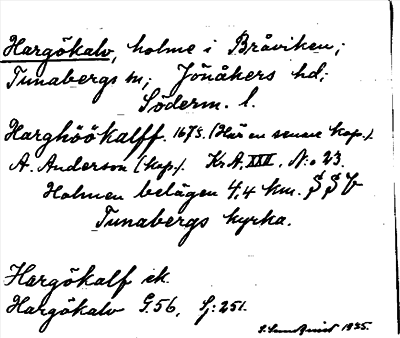 Hargökalv, holme i Bråviken;
Tunabergs sn; Jönåkers hd;
Söderm. l.
Harghöökalff. 1675. (Här en senare kop.).
A. Anderson (kop.). Kr.A. XXX. N:o 23.
Holmen belägen 4,4 km. S S V
Tunabergs kyrka.
Hargökalf ek.
Hargökalv G.56, Sj:251.
1935.